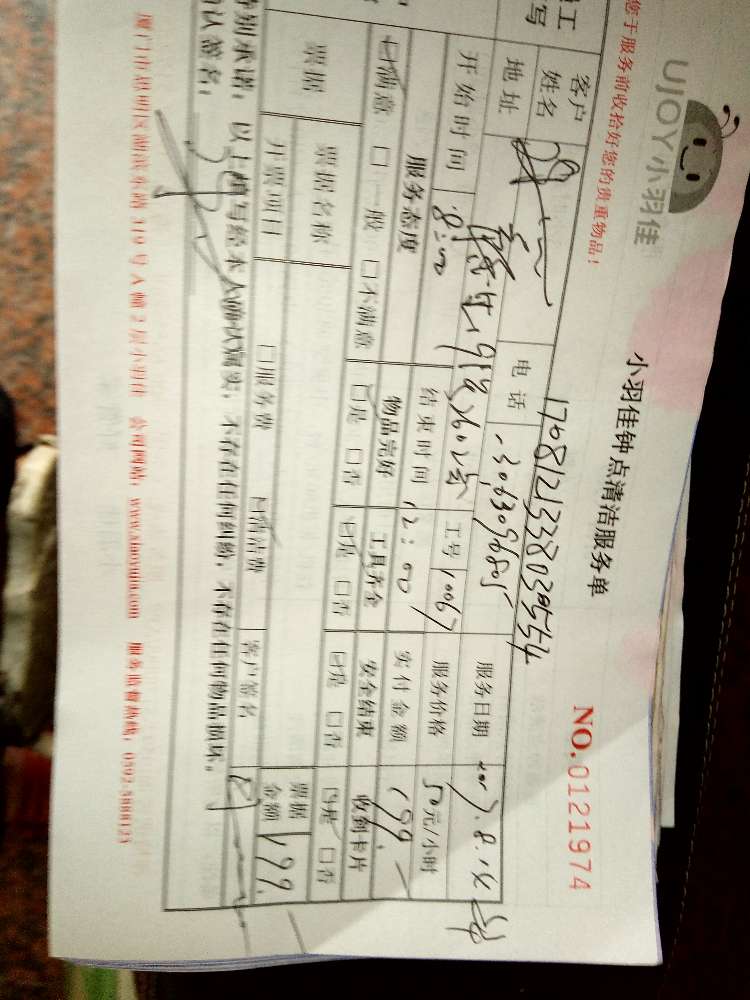 UJOY小羽佳
小羽佳钟点清洁服务单
NO.0121974
您于服务前收拾好您的贵重物品！
1708121338039554
客户姓名 电话 13063096805 服务日期 2017.8.
地址 1602室 工号 10067 服务价格 50元/小时
开始时间 8:00 结束时间 12:00 实付金额 199.
服务态度 物品完好 工具齐全 安全结束 收到卡片
☑满意 □一般 □不满意 ☑是 □否 ☑是 □否 ☑是 □否 ☑是 □否
票据 票据名称 票据金额 199.
开票项目 □服务费 ☑清洁费 客户签名
特别承诺：以上填写经本人确认属实，不存在任何纠纷，不存在任何物品损坏。
认签名：
厦门市思明区湖滨东路319号A幢2层小羽佳 公司网站：www.xiaoyujia.com 服务监督热线：0592-5888123